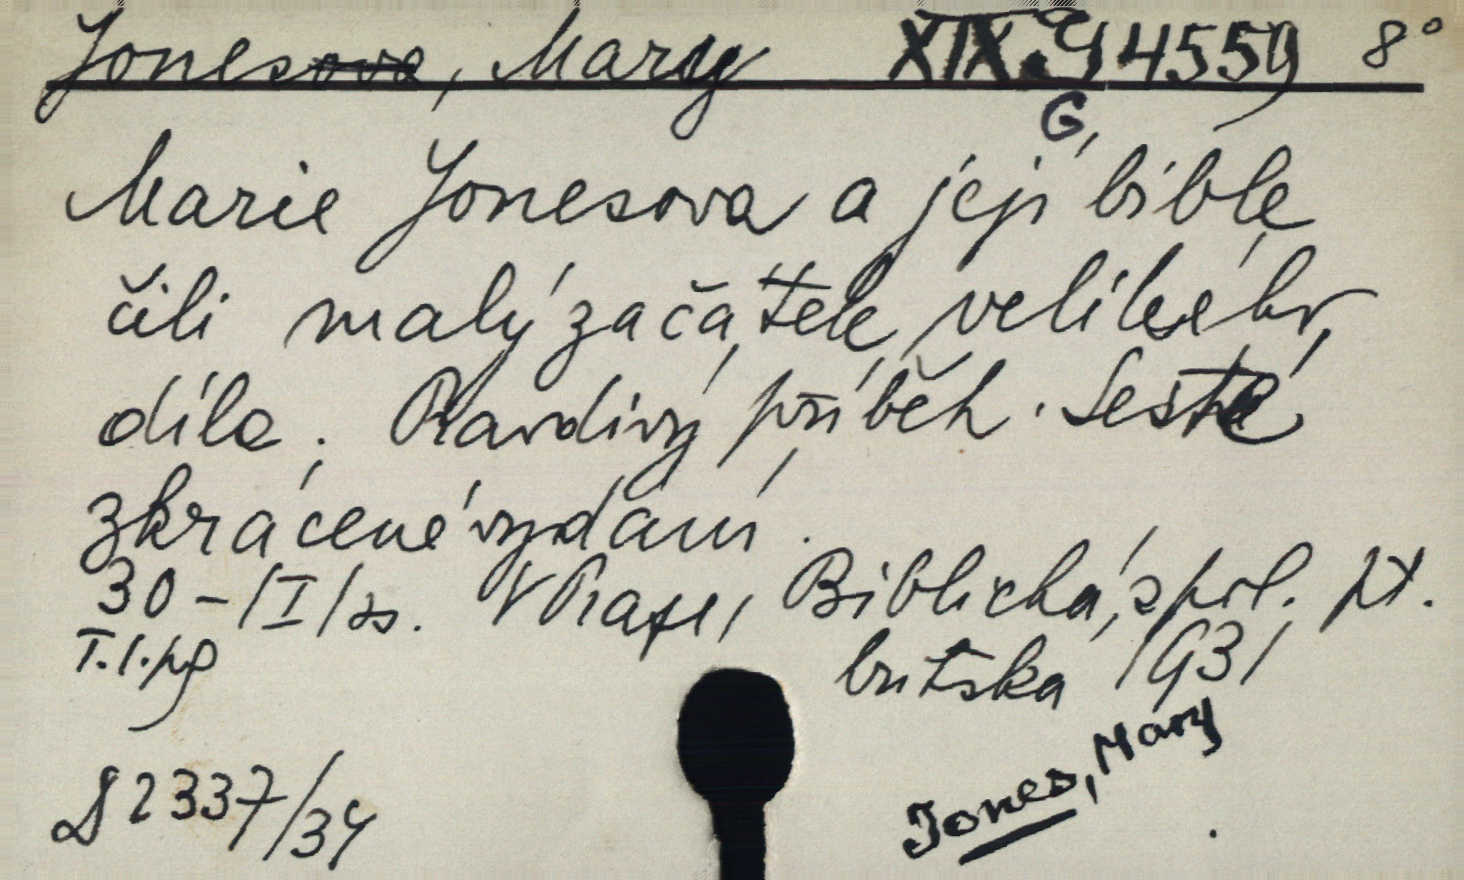 Jonesova, Mary XIX.G 4559 8°
G
Marie Jonesova a její bible
čili malý začátek velikéhr,
díla. Pravdivý příběh. Šesté
zkrácené vydání.
30-/I/ s. V Praze, Biblická spol. zt.
britská 1931
T.l.
D 2337/34
Jones, Mary